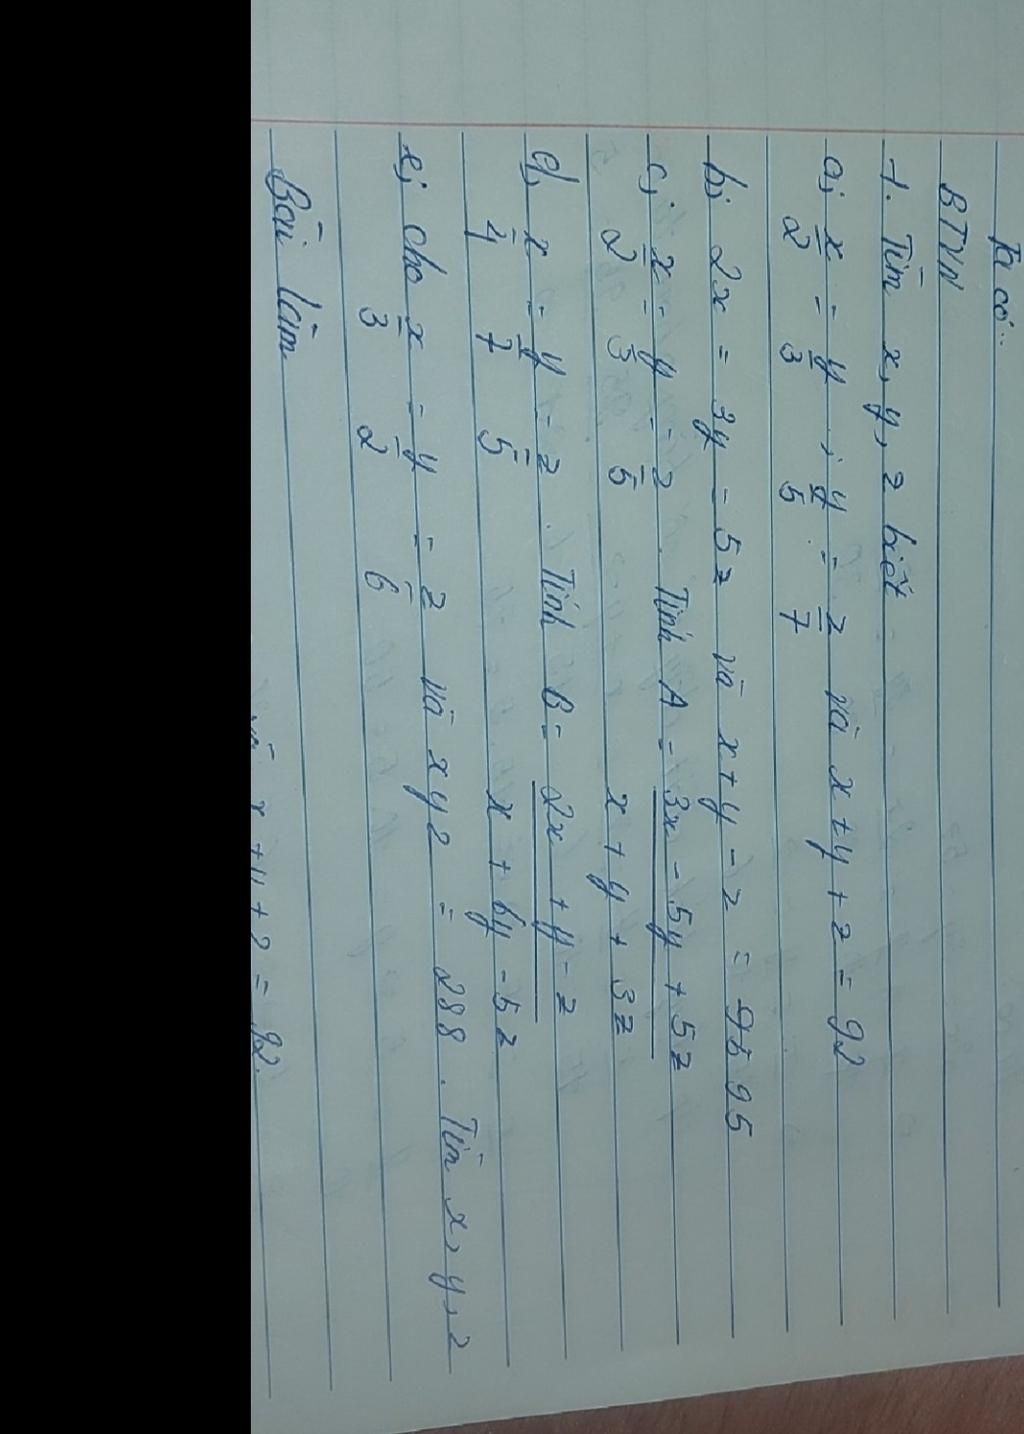 Ta có:
BTVN
1. Tìm x, y, z biết
a, x/2 = y/3 ; y/5 = z/7 và x + y + z = 92
b, 2x = 3y = 5z và x + y - z = 95
c, x/2 = y/3 = z/5. Tính A = (3x - 5y + 5z)/(x + y + 3z)
d, x/4 = y/7 = z/5. Tính B = (2x + y - z)/(x + 6y - 5z)
e, cho x/3 = y/2 = z/6 và xyz = 288. Tìm x, y, z
Bài làm
và x + y + z = 92